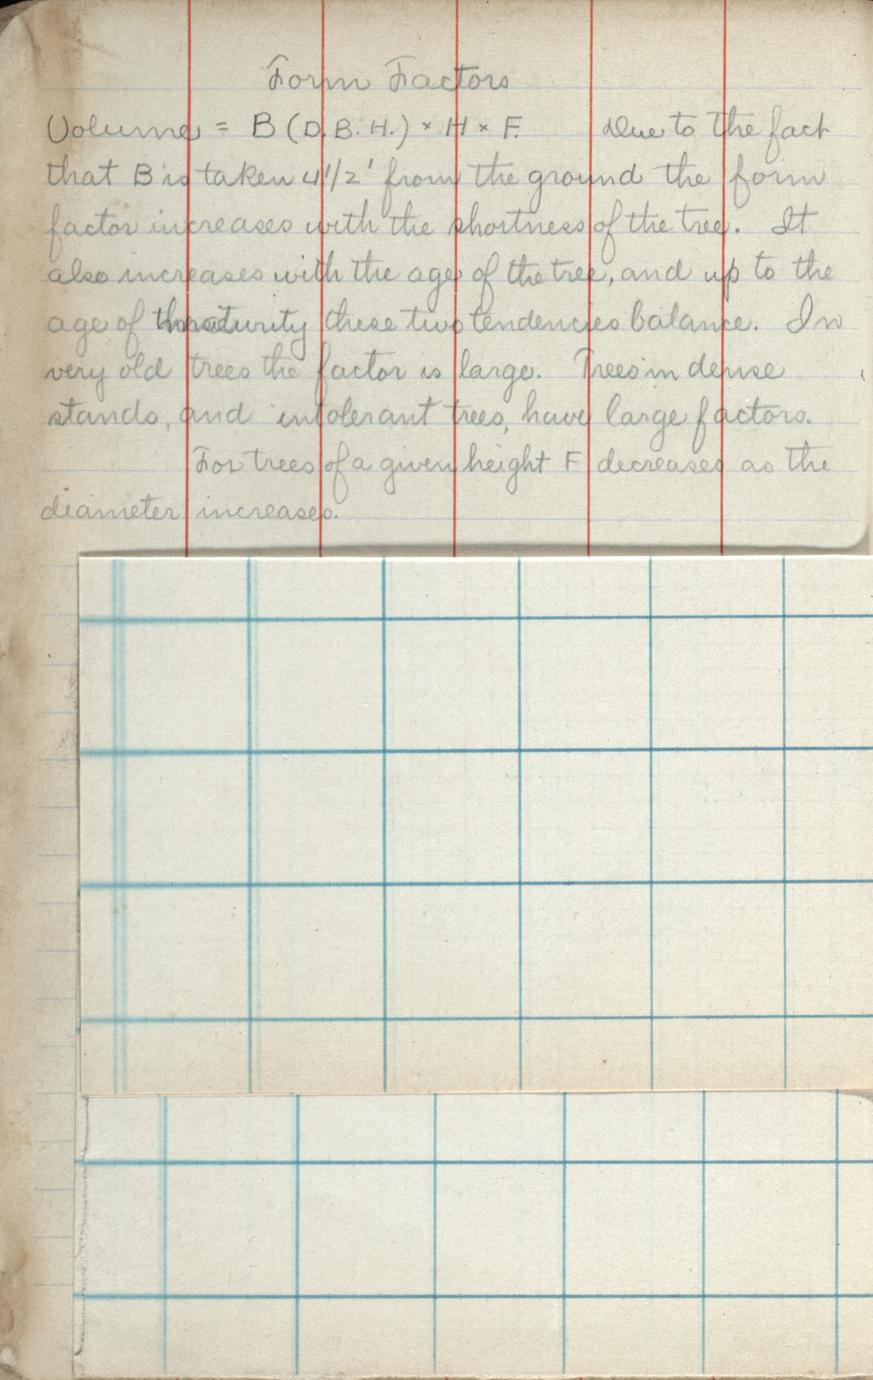 Form Factors
Volume = B (D.B.H.) × H × F. Due to the fact
that B is taken 4 1/2' from the ground the form
factor increases with the shortness of the tree. It
also increases with the age of the tree, and up to the
age of maturity these two tendencies balance. In
very old trees the factor is large. Trees in dense
stands, and intolerant trees, have large factors.
For trees of a given height F decreases as the
diameter increases.